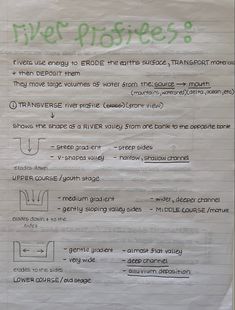 river profiles:
rivers use energy to ERODE the earths surface, TRANSPORT material
+ then DEPOSIT them
They move large volumes of water from the: source → mouth
(mountains, watershed) (delta, ocean, etc)
① TRANSVERSE river profile (front view)
↓
Shows the shape of a RIVER valley from one bank to the opposite bank
- steep gradient - steep sides
- v-shaped valley - narrow, shallow channel
erodes down
UPPER COURSE / youth stage
- medium gradient - wider, deeper channel
- gently sloping valley sides - MIDDLE COURSE / mature
erodes down + to the
sides
- gentle gradient - almost flat valley
- very wide - deep channel
erodes to the sides - alluvium deposition
LOWER COURSE / old stage